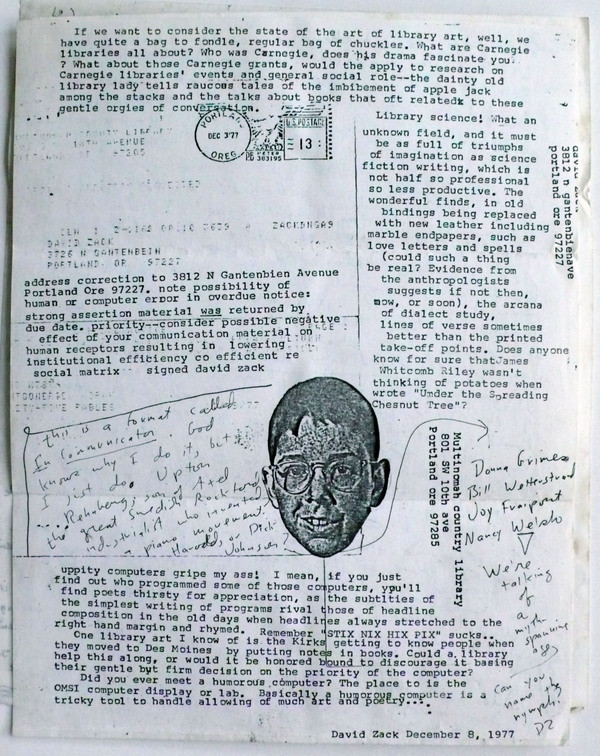 If we want to consider the state of the art of library art, well, we
have quite a bag to fondle, regular bag of chuckles. What are Carnegie
libraries all about? Who was Carnegie, does his drama fascinate you
? What about those Carnegie grants, would the apply to research on
Carnegie libraries' events and general social role--the dainty old
library lady tells raucous tales of the imbibement of apple jack
among the stacks and the talks about books that oft related to these
gentle orgies of conversation.
PORTLAND
DEC 3'77
OREG.
U.S. POSTAGE
13
PB METER
383195
DAVID ZACK
3726 N GANTENBEIN
PORTLAND, OR 97227
address correction to 3812 N Gantenbien Avenue
Portland Ore 97227. note possibility of
human or computer erpor in overdue notice:
strong assertion material was returned by
due date. priority--consider possible negative
effect of your communication material on
human receptors resulting in lowering
institutional efficiency co efficient re
social matrix signed david zack
Library science! What an
unknown field, and it must
be as full of triumphs
of imagination as science
fiction writing, which is
not half so professional
so less productive. The
wonderful finds, in old
bindings being replaced
with new leather including
marble endpapers, such as
love letters and spells
(could such a thing
be real? Evidence from
the anthropologists
suggests if not then,
now, or soon), the arcana
of dialect study,
lines of verse sometimes
better than the printed
take-off points. Does anyone
know for sure thatJames
Whitcomb Riley wasn't
thinking of potatoes when
wrote "Under the Spreading
Chesnut Tree"?
david zack
3812 n gantenbienave
portland ore 97227
this is a format called
In Communicator. God
knows why I do it, but
I just do. Upton
Rehnberg, son of Axel
the great Swedish Rocking
industrialist who invented
a piano movement.
Harold or Dick
Johnson?
Multinomah country library
801 SW 10th ave
Portland ore 97285
Donna Grimes
Bill
Joy
Nancy Welsh
We're
talking
of
a
myth
spawning
age
Can you
name the
nymphs?
DZ
uppity computers gripe my ass! I mean, if you just
find out who programmed some of those computers, ypu'll
find poets thirsty for appreciation, as the subtlties of
the simplest writing of programs rival those of headline
composition in the old days when headlines always stretched to the
right hand margin and rhymed. Remember "STIX NIX HIX PIX" sucks..
One library art I know of is the Kirks getting to know people when
they moved to Des Moines by putting notes in books. Could a library
help this along, or would it be honored bound to discourage it basing
their gentle byt firm decision on the priority of the computer?
Did you ever meet a humorous computer? The place to is the
OMSI computer display or lab. Basically a humorous cumputer is a
tricky tool to handle allowing of much art and poetry...
David Zack December 8, 1977